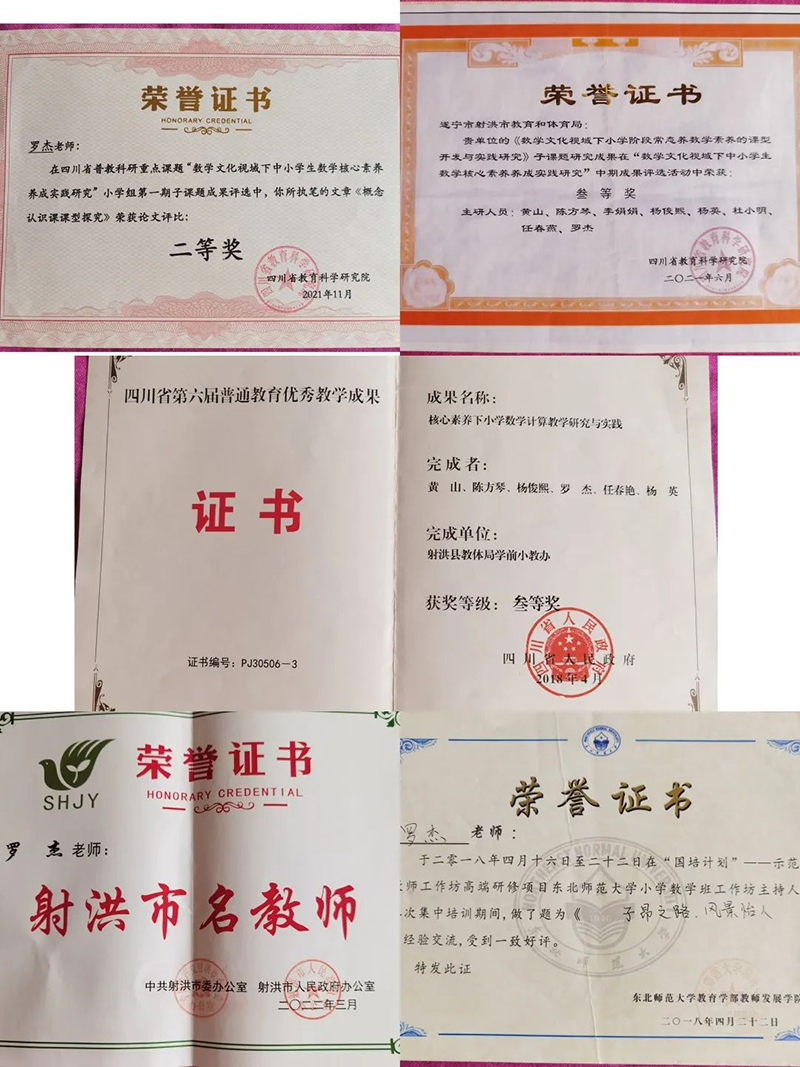 荣誉证书
HONORARY CREDENTIAL
罗杰老师：
在四川省普教科研重点课题“数学文化视域下中小学生数学核心素养
养成实践研究”小学组第一期子课题成果评选中，你所执笔的文章《概念
认识课课型探究》荣获论文评比：
二等奖
四川省教育科学研究院
2021年11月
荣誉证书
遂宁市射洪市教育和体育局：
贵单位的《数学文化视域下小学阶段常态养数学素养的课型
开发与实践研究》子课题研究成果在“数学文化视域下中小学生
数学核心素养养成实践研究”中期成果评选活动中荣获：
叁等奖
主研人员：黄山、陈方琴、李娟娟、杨俊熙、杨英、杜小明、
任春燕、罗杰
四川省教育科学研究院
二〇二一年六月
四川省第六届普通教育优秀教学成果
证书
证书编号：PJ30506－3
成果名称：
核心素养下小学数学计算教学研究与实践
完成者：
黄 山、陈方琴、杨俊熙、罗 杰、任春艳、杨 英
完成单位：
射洪县教体局学前小教办
获奖等级：叁等奖
四川省人民政府
2018年4月
SHJY
荣誉证书
HONORARY CREDENTIAL
罗 杰老师：
射洪市名教师
中共射洪市委办公室 射洪市人民政府办公室
二〇二二年三月
荣誉证书
罗杰 老师：
于二零一八年四月十六日至二十二日在“国培计划”——示范
师工作坊高端研修项目东北师范大学小学数学班工作坊主持人
次集中培训期间，做了题为《 子昂之路.风景怡人
经验交流，受到一致好评。
特发此证
东北师范大学教育学部教师发展学院
二〇一八年四月二十二日